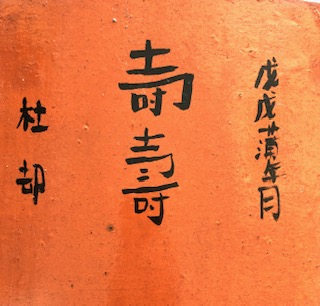 戊戌蒲年月
壽壽
杜却